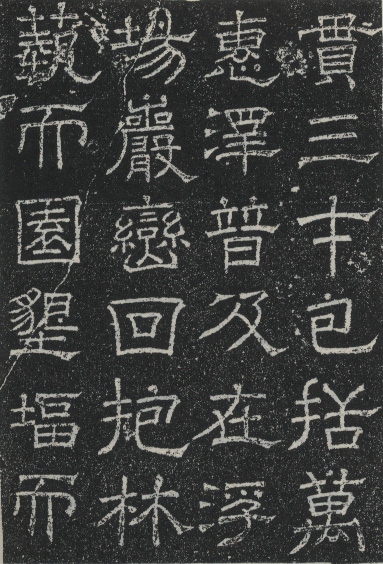 貫三才包括萬
惠澤普及在浮
場巖巒回抱林
藝而園墾堛而